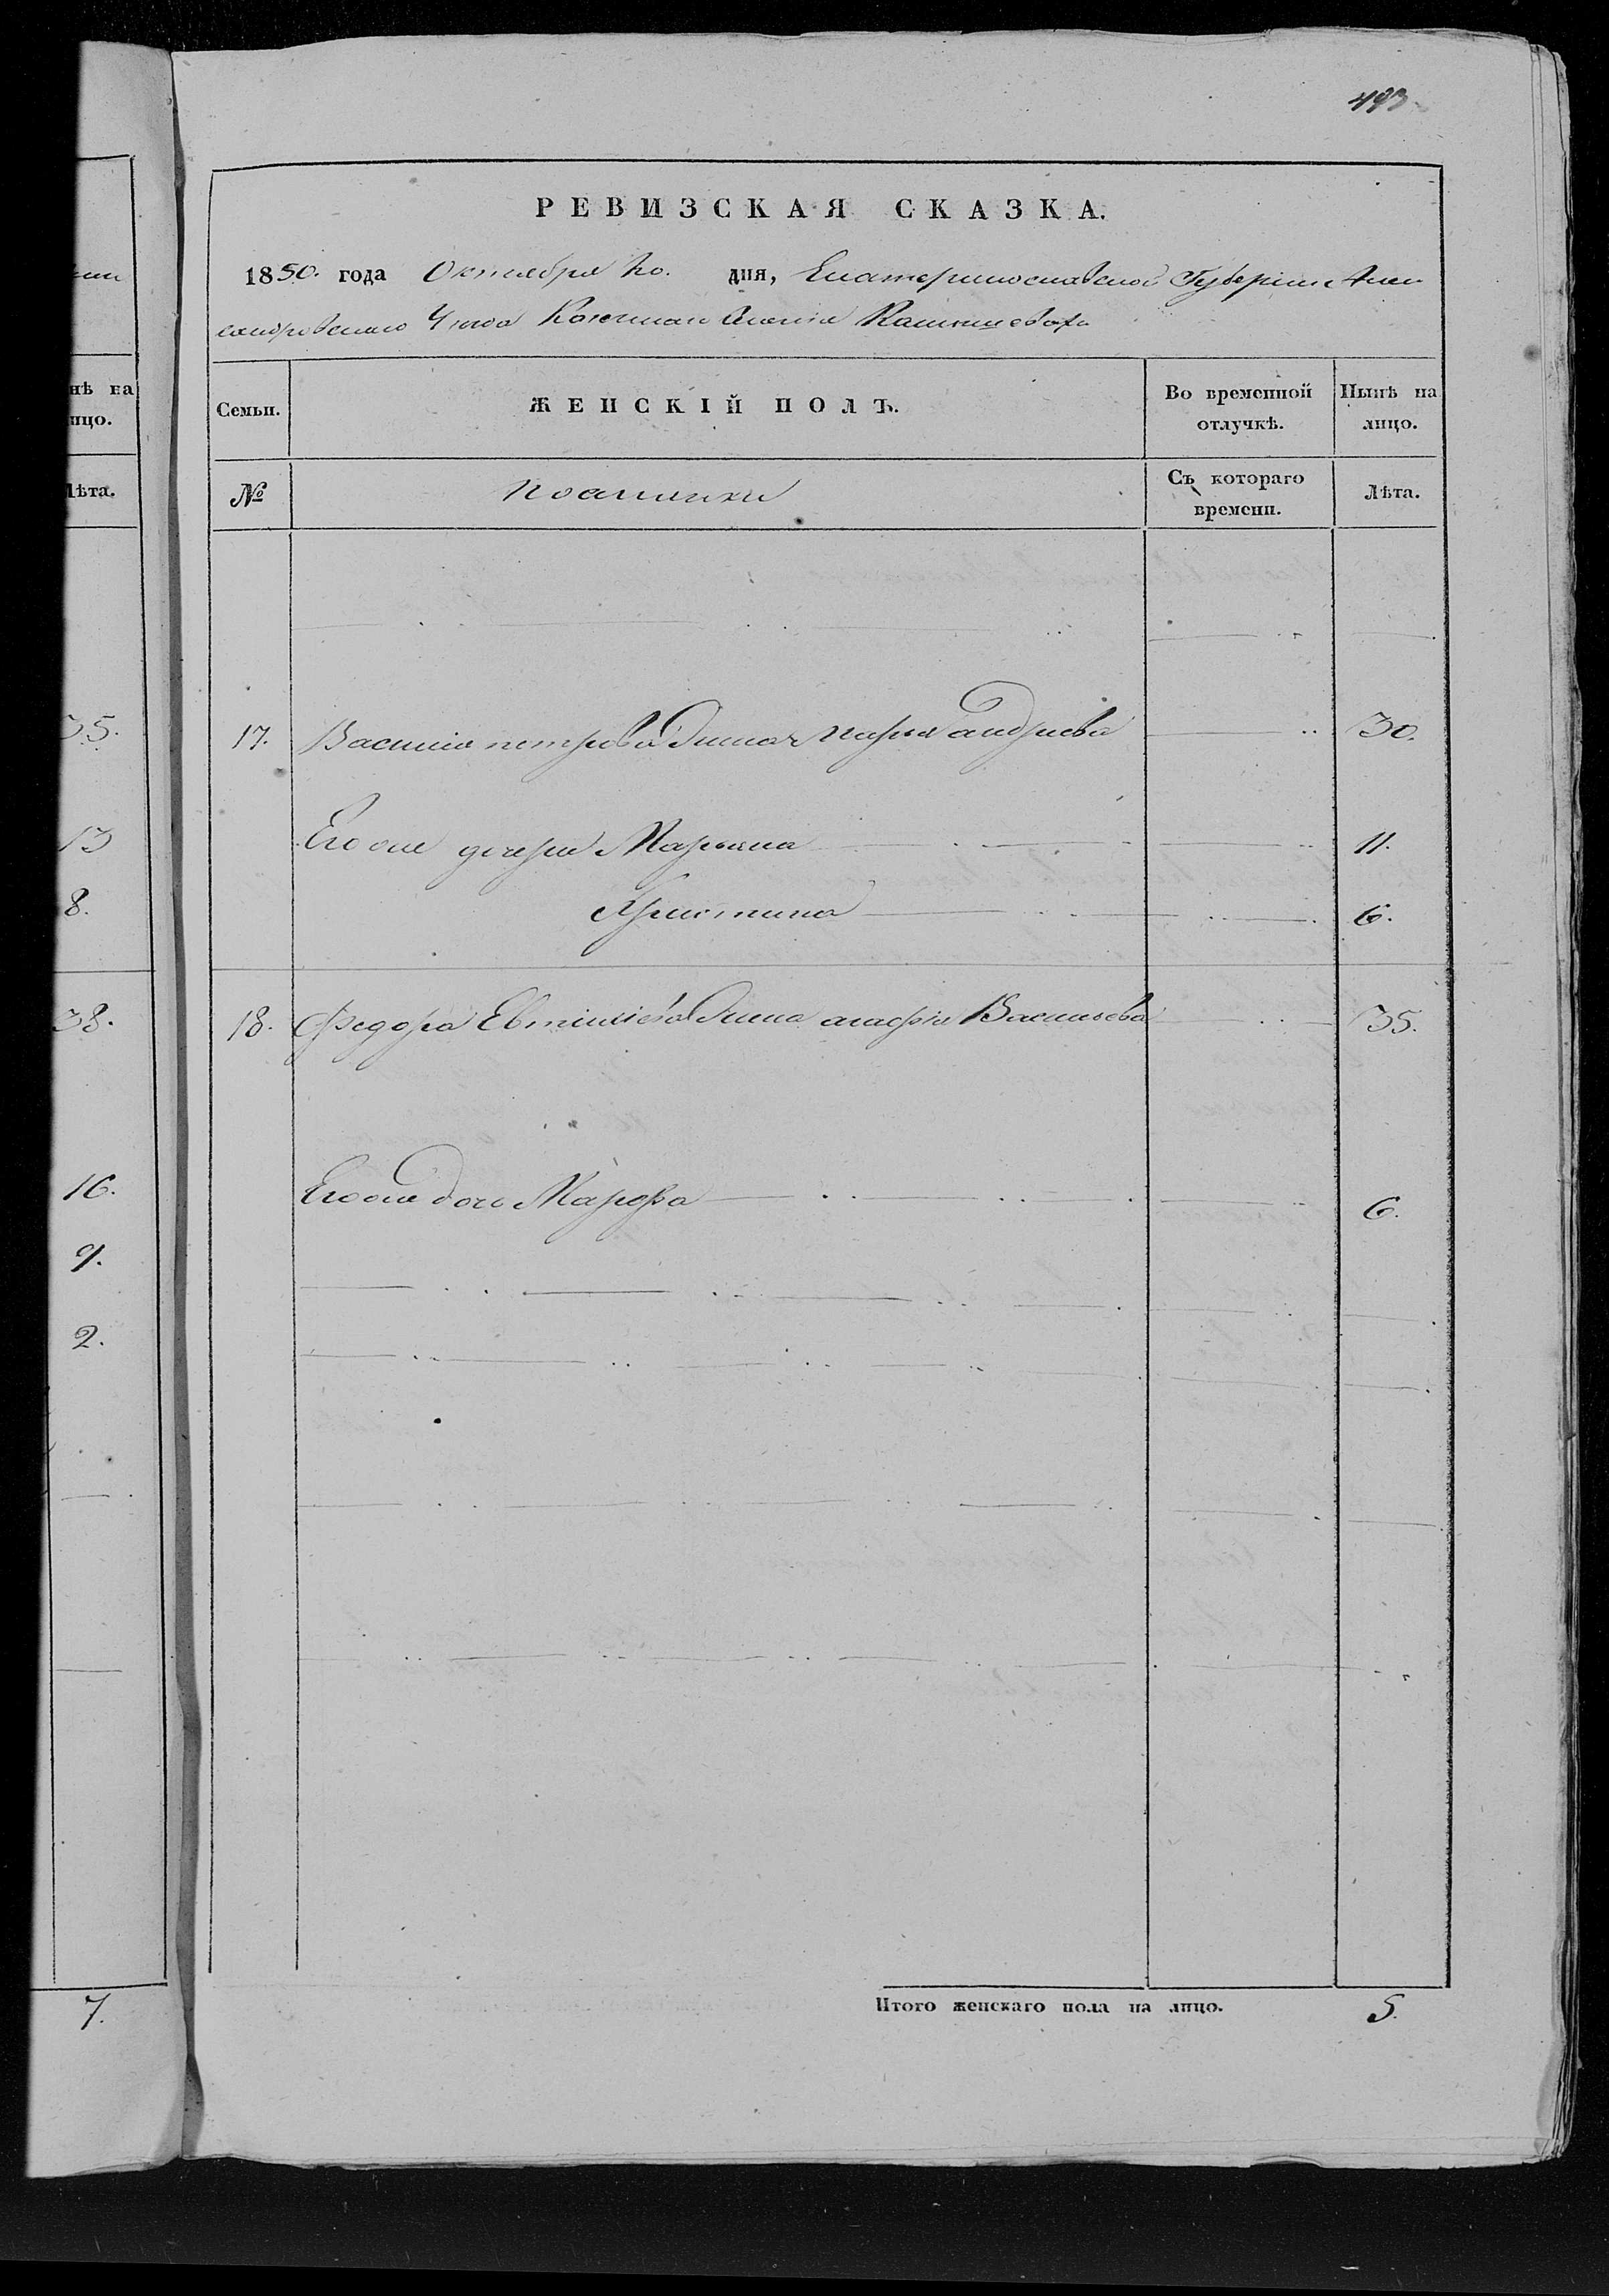 493
РЕВИЗСКАЯ СКАЗКА.
1850. года Октября 20. дня, Екатеринославской Губерніи Алек
сандровскаго Уезда
Семьи. ЖЕНСКІЙ ПОЛЪ. Во временной отлучкѣ. Нынѣ на лицо.
№ Съ котораго времени. Лѣта.
17. Василія петрова жина марья андриева 30.
Егоже дочери Марьяна 11.
Христина 6.
18. Федора Евтихіева жина агафія Васильева 35.
Егоже дочь Марфа 6.
Итого женскаго пола на лицо. 5.
нѣ на
лицо.
Лѣта.
35.
13
8.
38.
16.
9.
2.
7.